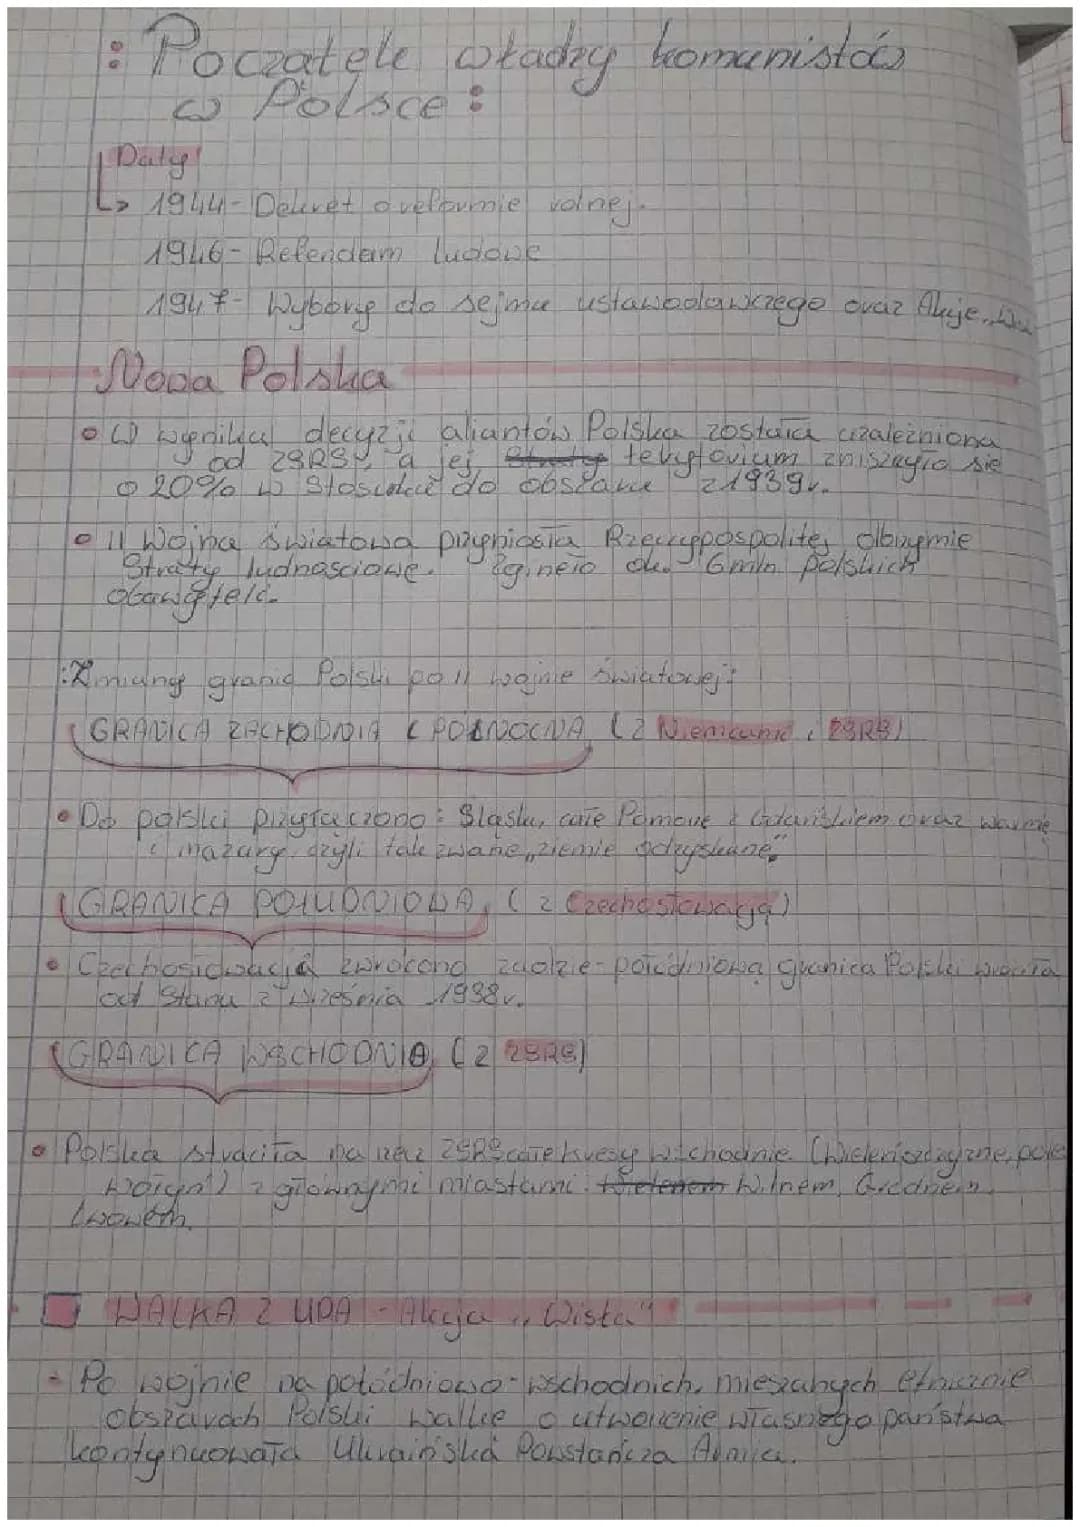 : Początek władzy komunistów
w Polsce :
Daty!
↳ 1944 - Dekret o reformie rolnej.
1946 - Refendam ludowe
1947 - Wybory do sejmu ustawodawczego oraz Akcje
Nowa Polska
• W wyniku decyzji aliantów Polska została uzależniona
od ZSRS, a jej terytorium zniszyło sie
o 20% w stosunku do obszaru z 1939r.
• II Wojna światowa przyniosła Rzeczypospolitej olbrzymie
straty ludnościowe. Zgineło ok. 6mln polskich
obawateli.
: Zmiany granic Polski po II wojnie światowej :
GRANICA ZACHODNIA I PÓŁNOCNA (z Niemcami i ZSRS)
• Do polski przyłączono : Sląsk, całe Pomorze z Gdańskiem oraz warmie
i mazury. czyli tak zwane „ziemie odzyskane”
GRANICA POŁUDNIOWA (z Czechosłowacją)
• Czechosłowacją zwrócono zaolzie - południową granica Polski wróciła
od stanu z września 1938r.
GRANICA WSCHODNIA (z ZSRS)
• Polska straciła na rzecz ZSRS całe kresy wschodnie.
z głównymi miastami: Wilnem, Grodnem,
Lwowem.
WALKA Z UPA - Akcja „Wisła”
- Po wojnie na połódniowo-wschodnich, mieszanych etnicznie
obszarach Polski walke o utworzenie własnego państwa
kontynuowała Ukraińska Powstańcza Armia.